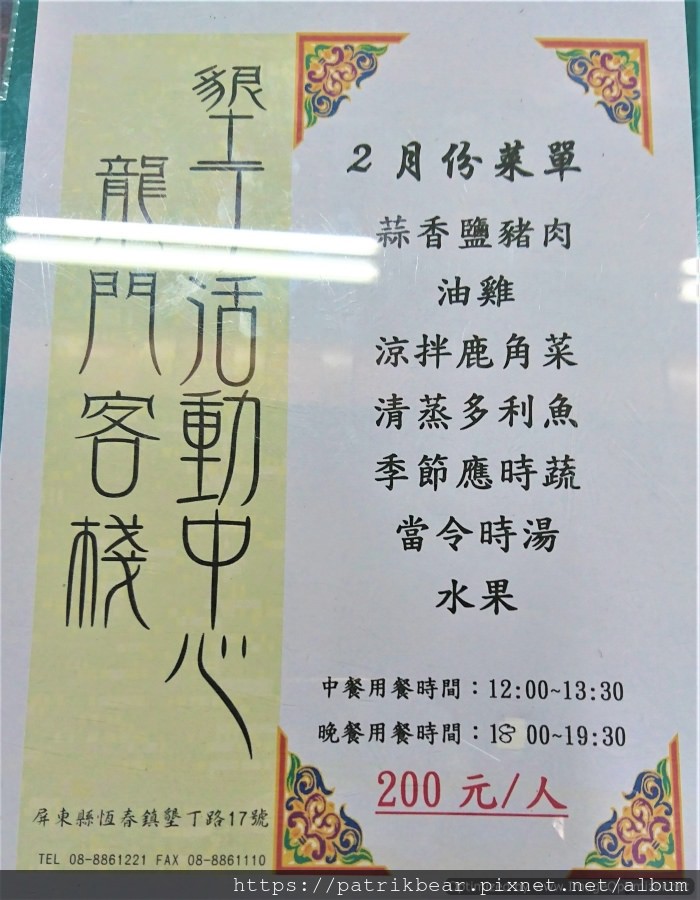 墾丁活動中心
龍門客棧
屏東縣恆春鎮墾丁路17號
TEL 08-8861221 FAX 08-8861110
2月份菜單
蒜香鹽豬肉
油雞
涼拌鹿角菜
清蒸多利魚
季節應時蔬
當令時湯
水果
中餐用餐時間：12:00~13:30
晚餐用餐時間：18 00~19:30
200元/人
https://patrikbear.pixnet.net/album